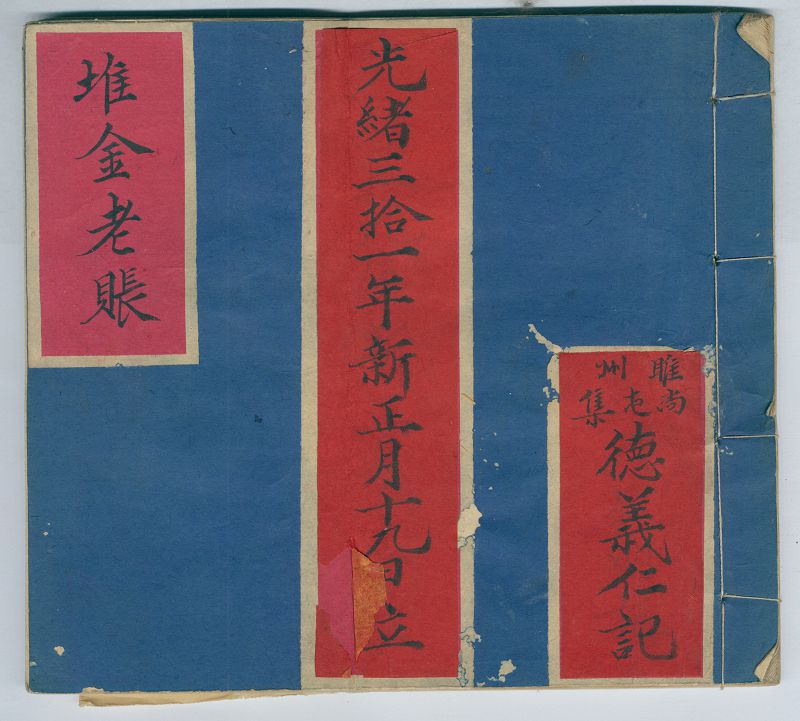 睢州
尚屯集
德義仁記
光緒三拾一年新正月十九日立
堆金老賬